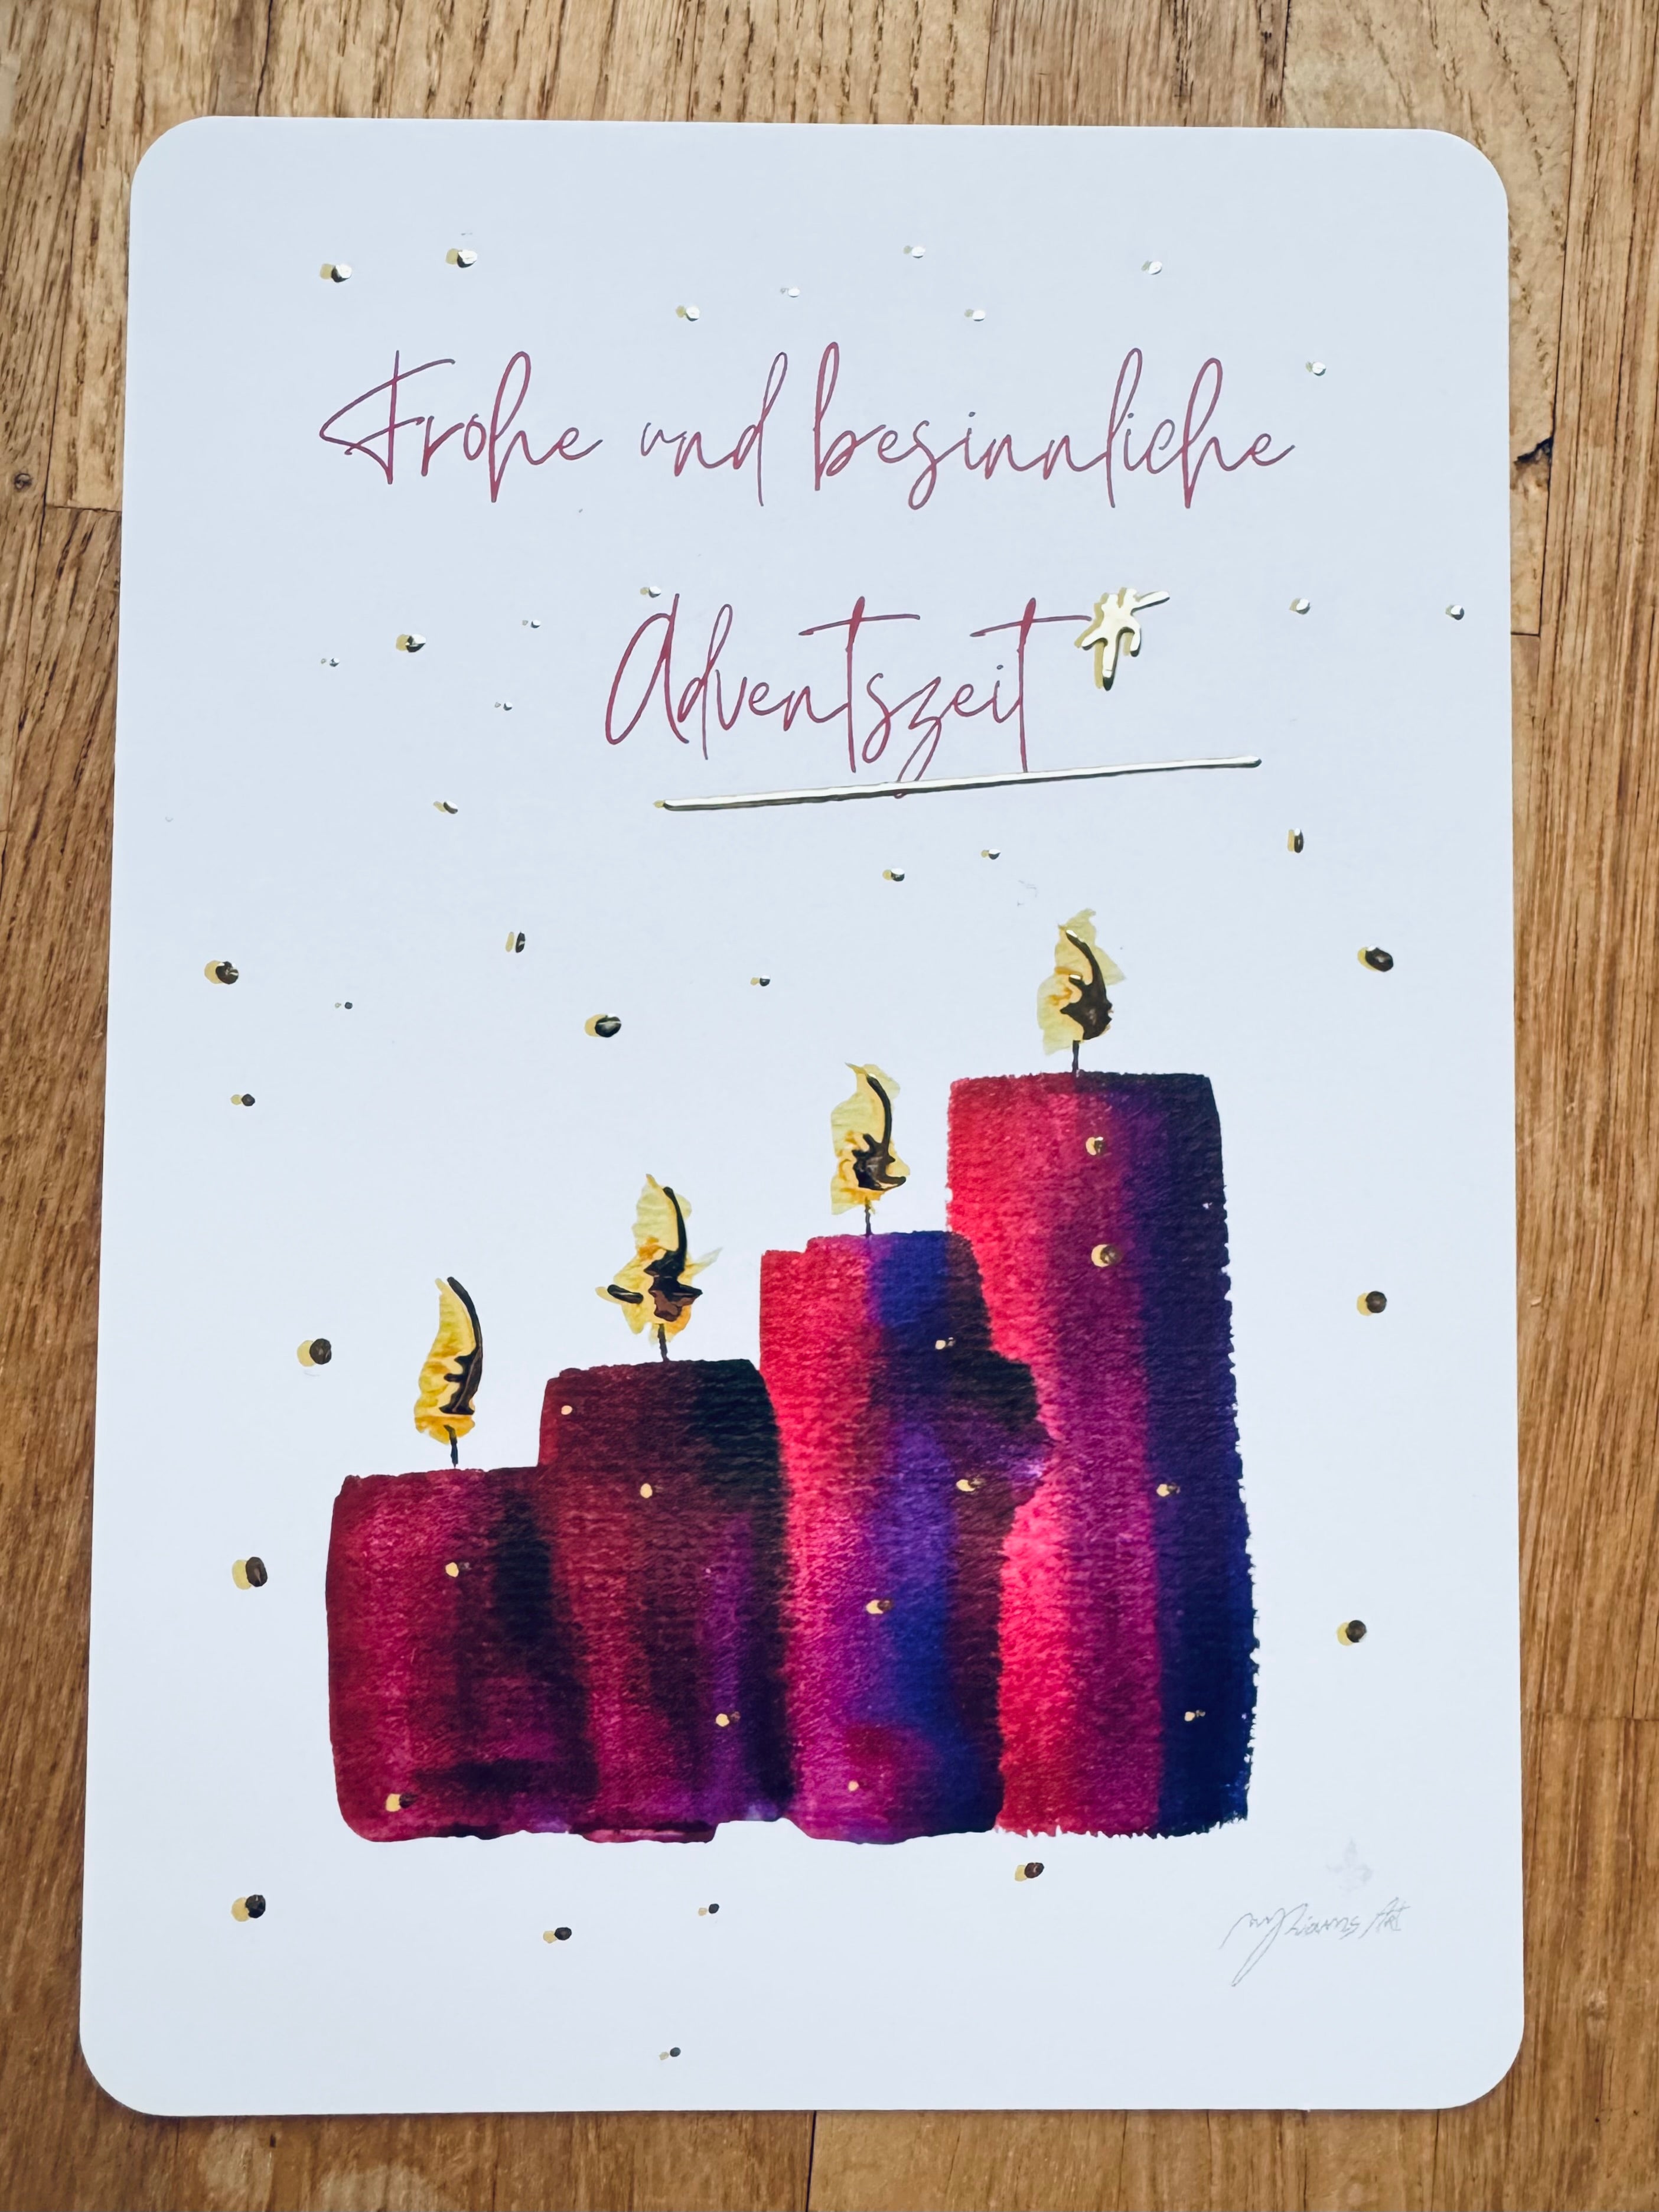 Frohe und besinnliche
Adventszeit
Art